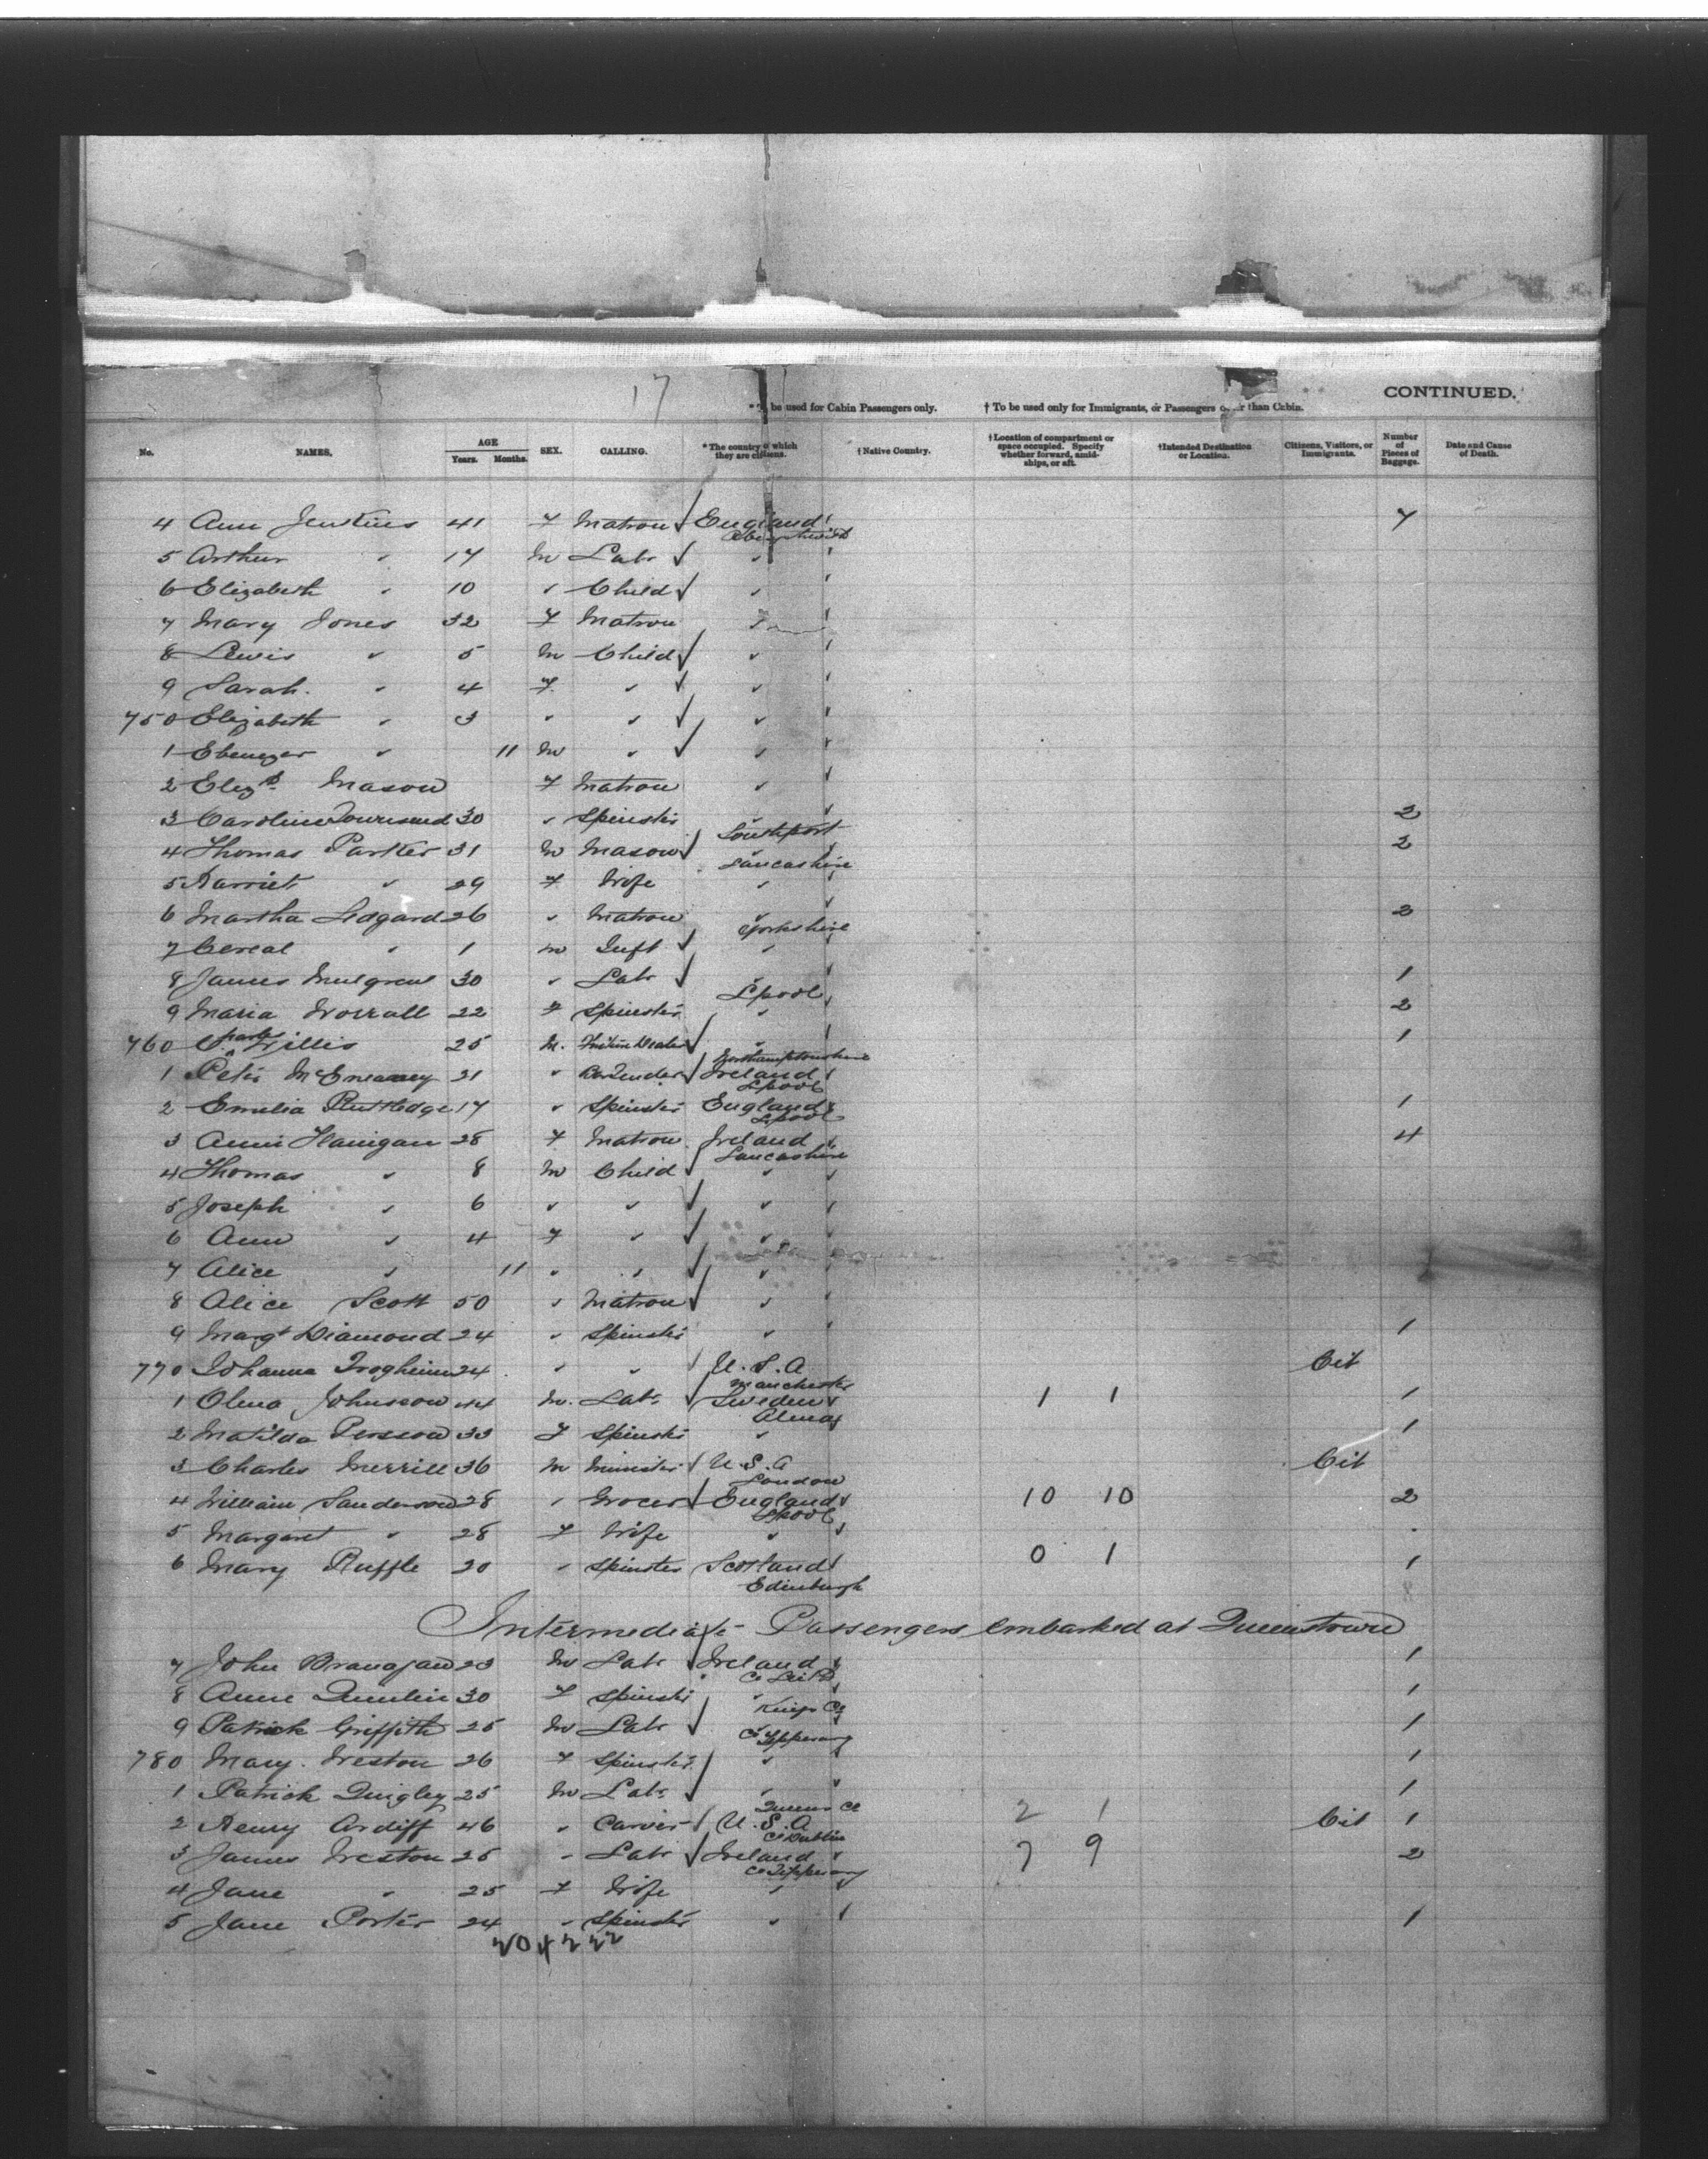 17
CONTINUED.
* To be used for Cabin Passengers only. † To be used only for Immigrants, or Passengers other than Cabin.
No. NAMES. AGE Years. Months. SEX. CALLING. * The country of which they are citizens. † Native Country. † Location of compartment or space occupied. Specify whether forward, amidships, or aft. † Intended Destination or Location. Citizens, Visitors, or Immigrants. Number of Pieces of Baggage. Date and Cause of Death.
4 Ann Jenkins 41 F Matron England 7
5 Arthur " 17 M Labr "
6 Elizabeth " 10 " Child "
7 Mary Jones 32 F Matron "
8 Lewis " 5 M Child "
9 Sarah. " 4 F " "
750 Elizabeth " 3 " " "
1 Ebenezer " 11 M " "
2 Elizth Mason F Matron "
3 Caroline Townsend 30 " Spinster " 2
Southport
4 Thomas Parker 31 M Mason " 2
Lancashire
5 Harriet " 29 F Wife "
6 Martha Ledgard 26 " Matron " 2
Yorkshire
7 " 1 M Inft "
8 James Mulgrew 30 " Labr " 1
Lpool
9 Maria Worrall 22 F Spinster " 2
760 Willis 25 M. " 1
Northamptonshire
1 Peter McEneaney 21 " Bartender Ireland
Lpool
2 Emelia Ruttledge 17 " Spinster England 1
Lpool
3 Annie Flanigan 28 F Matron Ireland 4
Lancashire
4 Thomas " 8 M Child "
5 Joseph " 6 " " "
6 Ann " 4 F " "
7 Alice " 11 " " "
8 Alice Scott 50 " Matron "
9 Margt Diamond 24 " Spinster " 1
770 Johanna 24 " " U.S.A Cit
Manchester
1 Johnsson 44 M. Labr Sweden 1 1 1
2 Matilda Persson 33 F Spinster " 1
3 Charles Merrill 36 M Minister U.S.A Cit
London
4 William Sanderson 28 " Grocer England 10 10 2
Lpool
5 Margaret " 28 F Wife "
6 Mary Ruffle 20 " Spinster Scotland 0 1 1
Edinburgh
Intermediate Passengers embarked at Queenstown
7 John Branagan 23 M Labr Ireland 1
8 Anne Quinlin 30 F Spinster " 1
Kings Co
9 Patrick Griffith 25 M Labr 1
Co Tipperary
780 Mary. Weston 26 F Spinster " 1
1 Patrick Quigley 25 M Labr " 1
Queens Co
2 Henry Ardiff 46 " Carver U.S.A 2 1 Cit 1
Co Dublin
3 James Weston 25 " Labr Ireland 7 9 2
Co Tipperary
4 Jane " 25 F Wife "
5 Jane Porter 24 " Spinster " 1